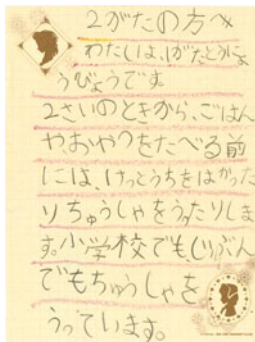 2がたの方へ
わたしは、1がたとうにょ
うびょうです。
2さいのときから、ごはん
やおやつをたべる前
には、けっとうちをはかった
りちゅうしゃをうったりしま
す。小学校でも、じぶん
でもちゅうしゃを
うっています。